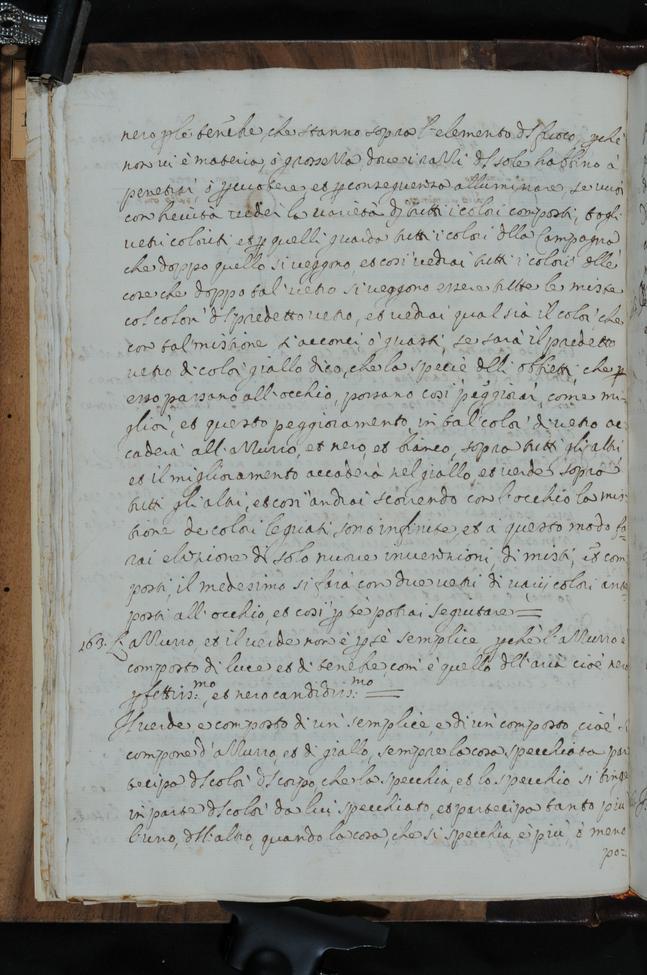 nero ple tenebre, che stanno sopra l'elemento del fuoco, pche
non vi è materia, o grossezza, dove i razzi del sole habbino à
penetrar, ò pcuotere et pconseguenza alluminare, se vuoi
con brevita veder la varietà di tutti i colori composti, togli
vetri coloriti, et p quelli guarda tutti i colori della Campagna
che doppo quello si veggono, et così vedrai tutti i colori delle
cose che doppo tal vetro si veggono essere tutte le miste
col color del predetto vetro, et vedrai qual sià il color, che
con tal mistione s'acconci ò guasti, se sarà il predetto
vetro di color giallo dico, che la specie delli obbietti, che p
esso passano all'occhio, possano così peggiorar, come mi=
glior, et questo peggioramento in tal color di vetro ac
caderà all'azzurro, et nero, et bianco, sopra tutti gli altri
et il miglioramento accaderà nel giallo, et verde sopra
tutti gli altri, et così andrai scorrendo con l'occhio la mis
tione de colori le quali sono infinite, et a questo modo fa=
rai elezione di solo nuove invenzioni, di misti, et com
posti, il medesimo si farà con due vetri di varij colori ante
posti all'occhio, et così p te potrai seguitare=
163. L'azzurro, et il verde non è pse semplice pche l'azzurro e
composto di luce et di tenebre, com'è quello dell'aria cioè nero
pfettiss:mo, et nero candidiss:mo=
Il verde e composto di un semplice, e di un composto, cioè si
compone d'azzurro, et di giallo, sempre la cosa specchiata par
tecipa del color del corpo, che la specchia, et lo specchio si tinge
in parte del color da lui specchiato, et partecipa tanto più
l'uno, dell'altro, quando la cosa, che si specchia, e più ò meno
po=